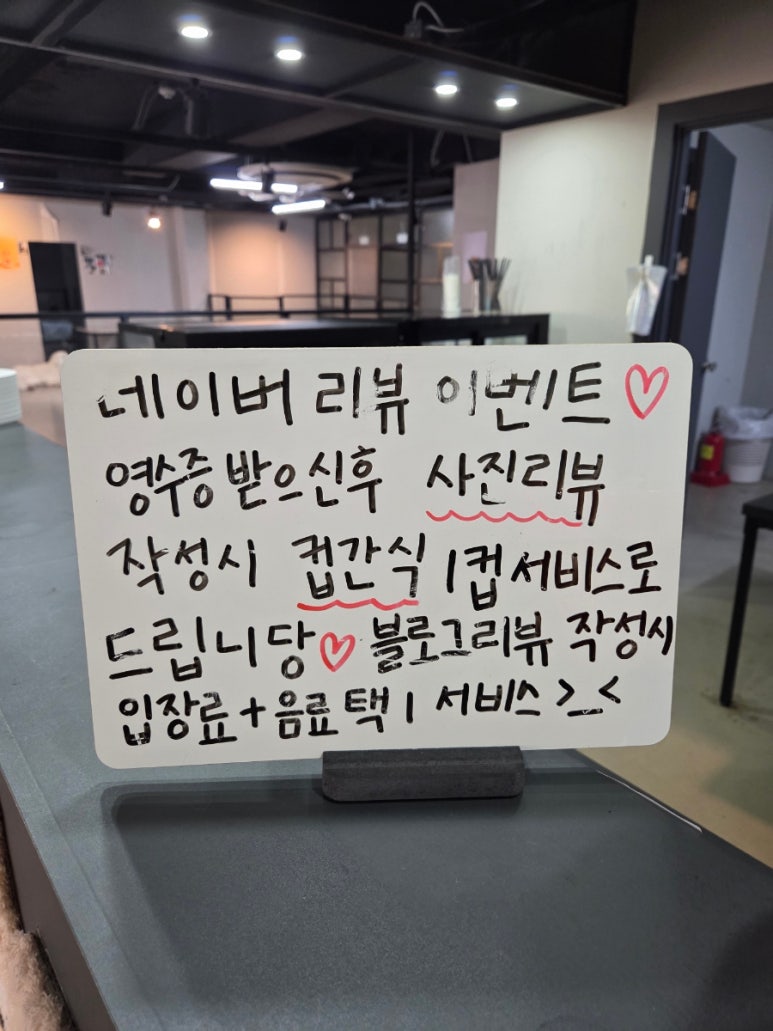 네이버 리뷰 이벤트♡
영수증 받으신후 사진리뷰
작성시 컵간식 1컵 서비스로
드립니당♡ 블로그리뷰 작성시
입장료+음료 택1 서비스 >_<